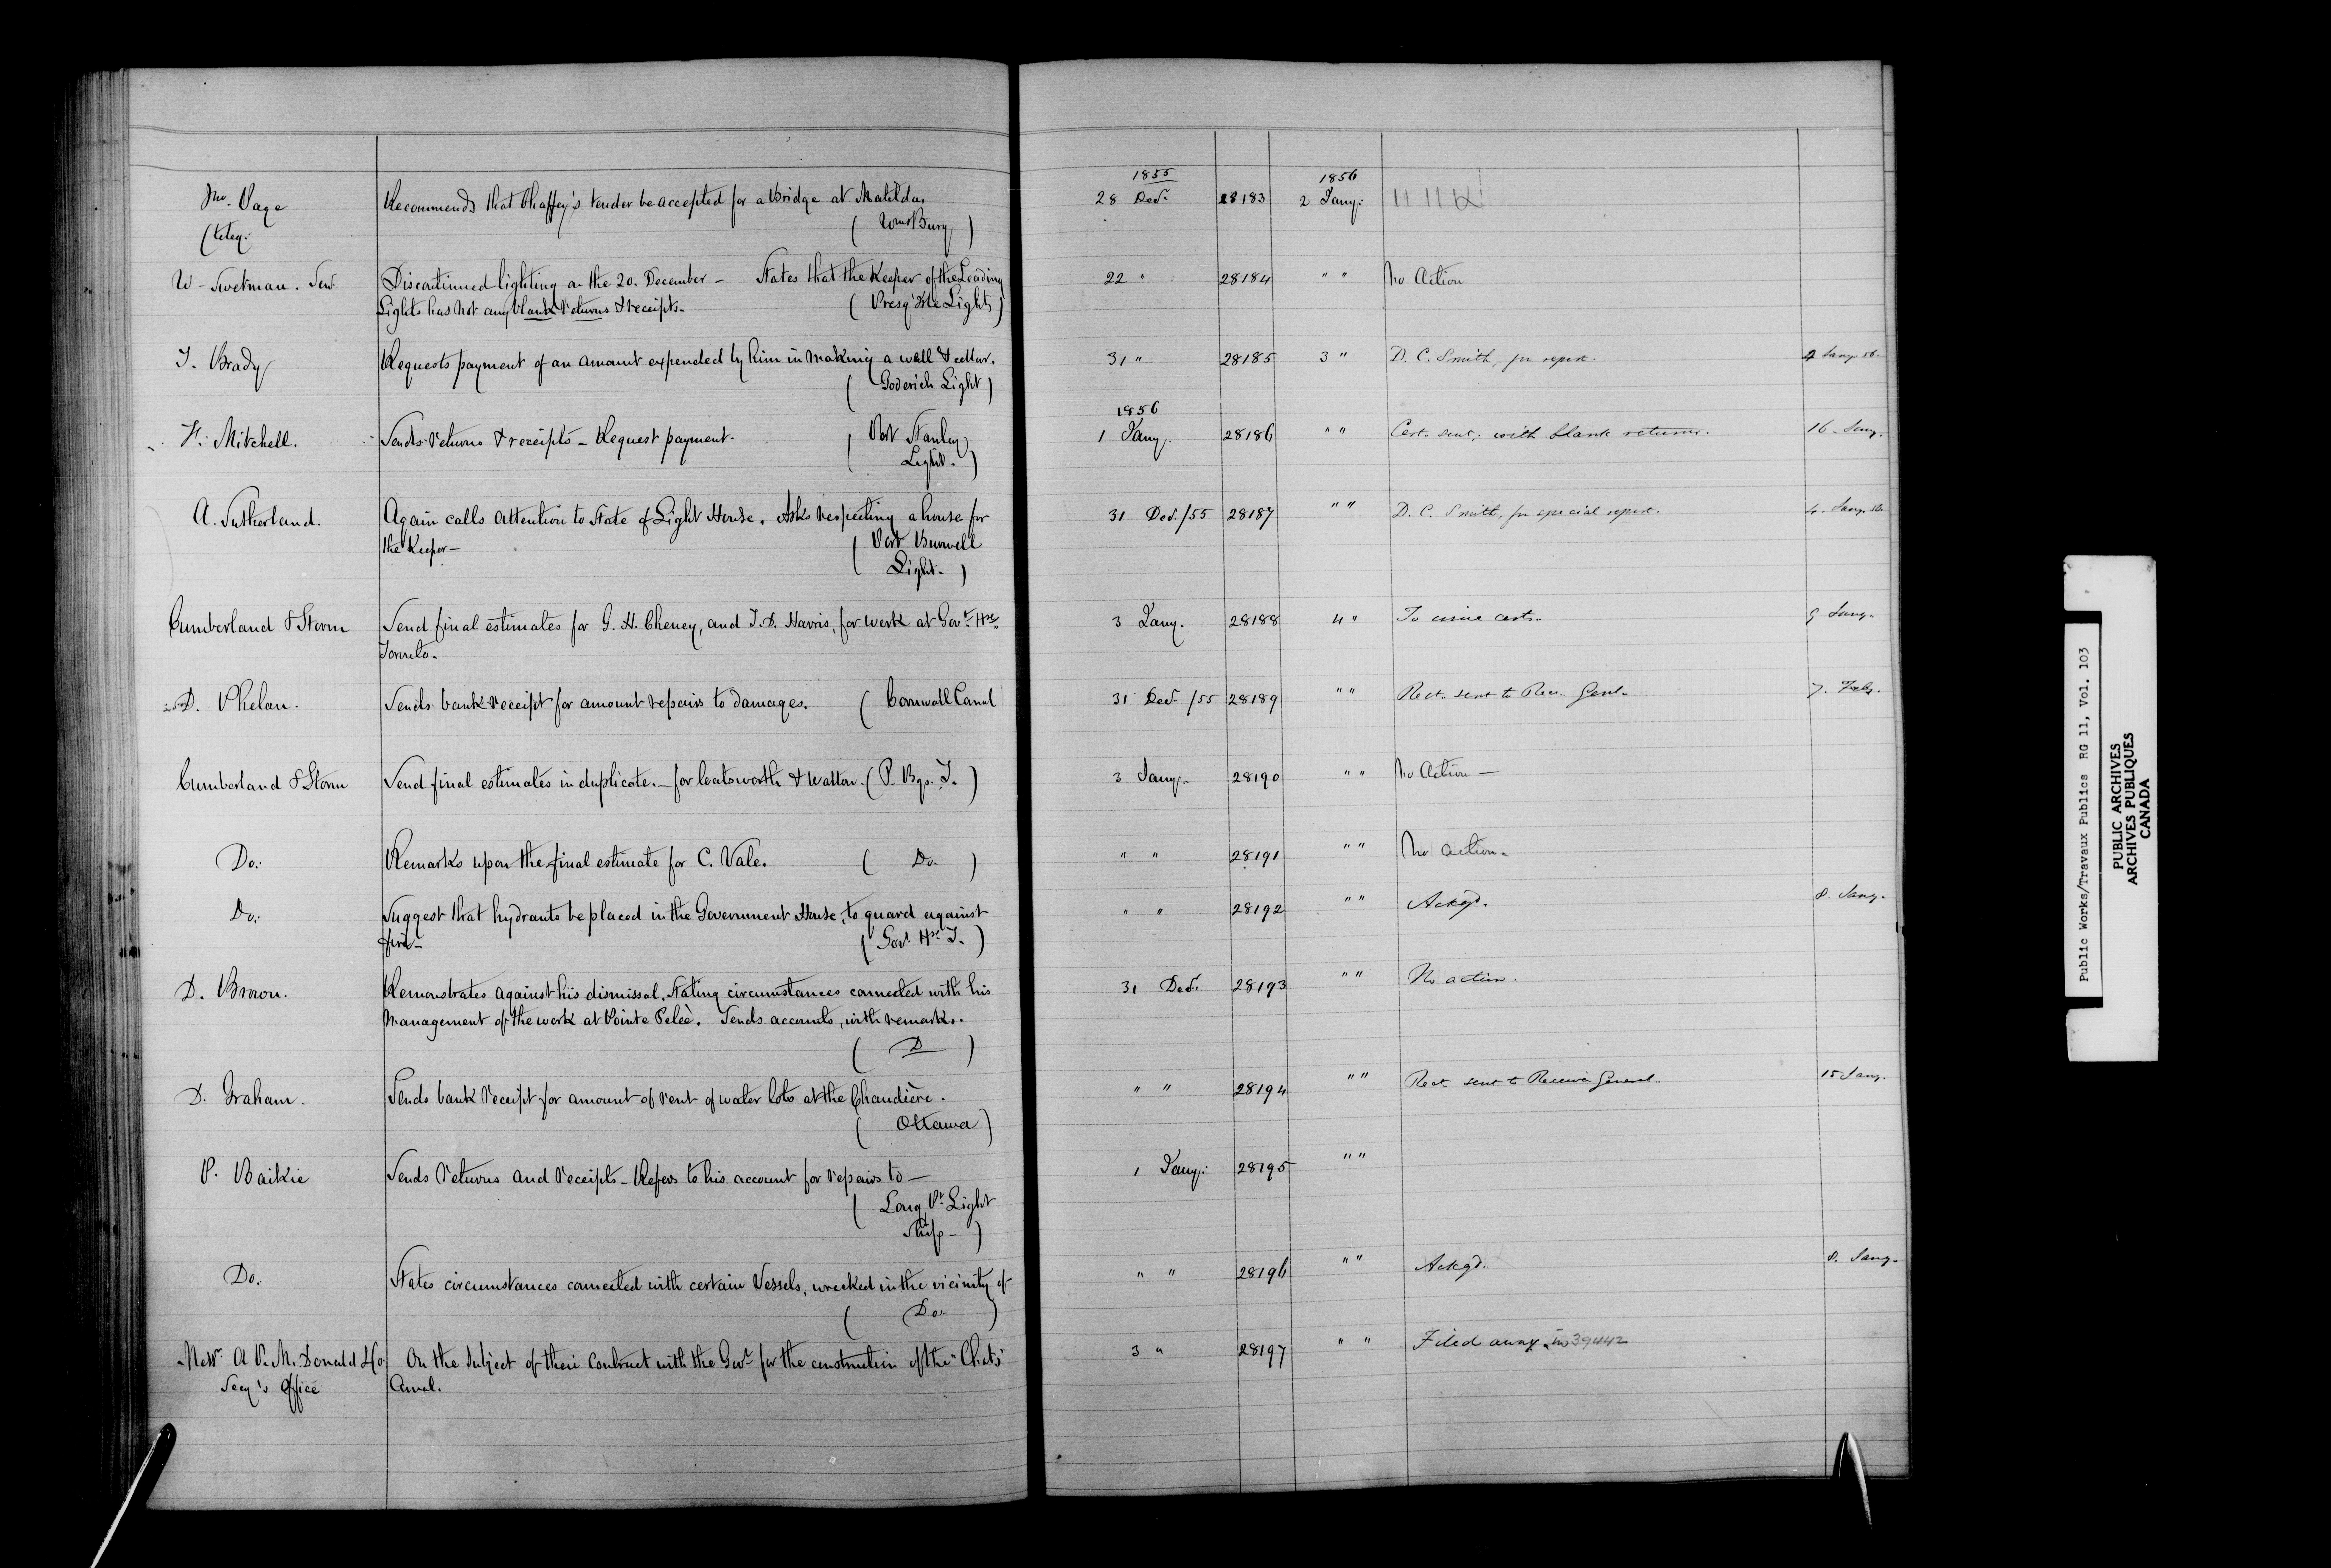 1855 1856
Jno. Page Recommends that Chaffey's tender be accepted for a Bridge at Matilda. 28 Decr. 28183 2 Jany.
(teleg: ( WmsBurg )
W. Swetman. Senr Discontinued lighting on the 20. December - States that the Keeper of the Leading 22 " 28184 " " No Action
Lights has not any blank returns & receipts. ( Presq' Isle Lights )
T. Brady Requests payment of an amount expended by him in making a well & cellar. 31 " 28185 3 " D. C. Smith, for report. 4 Jany. 56.
( Goderich Light )
1856
H. Mitchell. Sends returns & receipts - Request payment. ( Port Stanley 1 Jany. 28186 " " Cert. sent, with blank returns. 16. Jany.
Light. )
A. Sutherland. Again calls attention to State of Light House. Asks respecting a house for 31 Decr. /55 28187 " " D. C. Smith, for special report. 4. Jany. 56
the Keeper - ( Port Burwell
Light. )
Cumberland & Storm Send final estimates for G. H. Cheney, and T. D. Harris, for work at Govt. Hse. 3 Jany. 28188 4 " To issue certs. 9 Jany.
Toronto.
D. Phelan. Sends bank receipt for amount repairs to damages. ( Cornwall Canal 31 Decr. /55 28189 " " Rect. sent to Rec. Genl. 7. Feby.
Cumberland & Storm Send final estimates in duplicate. - for Coatsworth & Walton. ( P. Bgs. T. ) 3 Jany. 28190 " " No Action -
Do: Remarks upon the final estimate for C. Vale. ( Do. ) " " 28191 " " No action.
Do: Suggest that hydrants be placed in the Government House, to guard against " " 28192 " " Ackgd. 8. Jany.
fire - ( Govt. Hse. T. )
D. Brown. Remonstrates against his dismissal, Stating circumstances connected with his 31 Decr. 28193 " " No action.
Management of the work at Pointe Peleè. Sends accounts, with remarks.
( D )
D. Graham. Sends bank receipt for amount of rent of water lots at the Chaudière. " " 28194 " " Rect. sent to Receiver General. 15 Jany.
( Ottawa )
P. Baikie Sends returns and receipts - Refers to his account for repairs to - 1 Jany. 28195 " "
( Long Pt. Light
Ship - )
Do. States circumstances connected with certain Vessels, wrecked in the vicinity of " " 28196 " " Ackgd. 8. Jany.
( Do. )
Messrs. A P. McDonald & Co. On the subject of their Contract with the Govt. for the construction of the "Chats" 3 " 28197 " " Filed away in 39442
Secy's Office Canal.
Public Works/Travaux Publics RG 11, Vol. 103
PUBLIC ARCHIVES
ARCHIVES PUBLIQUES
CANADA